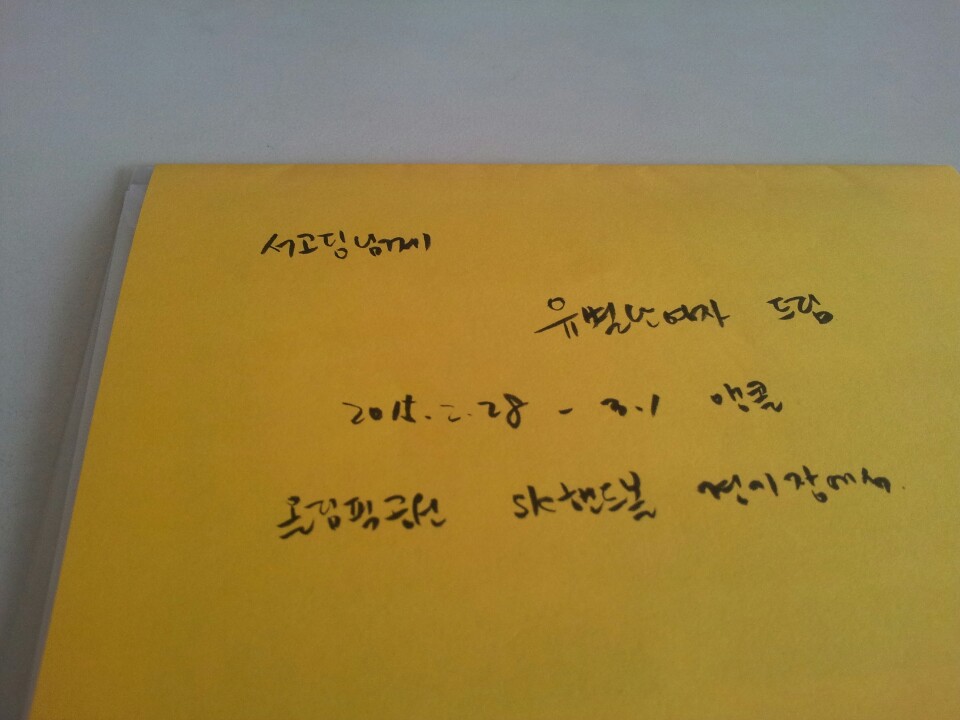 서고딩님께
유별난여자 드림
2015. 2. 28 - 3.1 앵콜
올림픽공원 SK핸드볼 경기장에서.